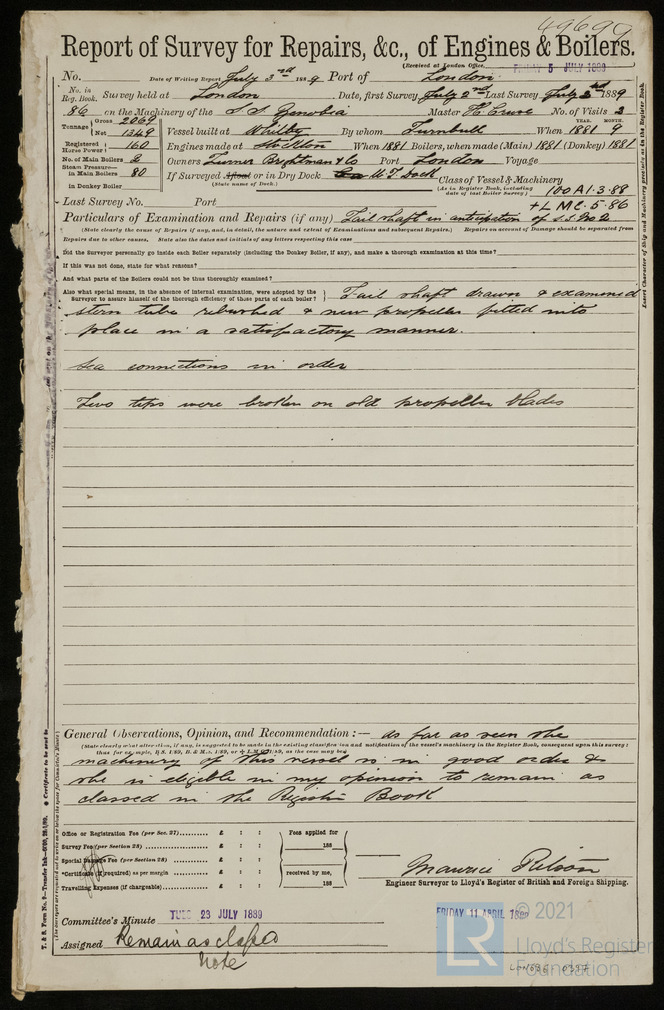 49699
Report of Survey for Repairs, &c., of Engines & Boilers.
(Received at London Office, FRIDAY 5 JULY 1889
No. Date of Writing Report July 3rd 1889 Port of London
No. in Reg. Book. Survey held at London Date, first Survey July 2nd Last Survey July 2nd 1889
86 on the Machinery of the S.S. Zenobia Master No. of Visits 2
Tonnage Gross 2069 Net 1349 Vessel built at Whitby By whom Turnbull When 1881 YEAR. MONTH. 9
Registered Horse Power 160 Engines made at Stockton When 1881 Boilers, when made (Main) 1881 (Donkey) 1881
No. of Main Boilers 2 Owners Turner Brightman & Co Port London Voyage
Steam Pressure— in Main Boilers 80 If Surveyed Afloat or in Dry Dock Dock
(State name of Dock.) Class of Vessel & Machinery
(As in Register Book, including date of last Boiler Survey.) 100A1.3.88
in Donkey Boiler
+LMC.5.86
Last Survey No. Port
Particulars of Examination and Repairs (if any) Tail shaft in anticipation of S.S. No 2
(State clearly the cause of Repairs if any, and, in detail, the nature and extent of Examinations and subsequent Repairs.) Repairs on account of Damage should be separated from
Repairs due to other causes. State also the dates and initials of any letters respecting this case
Did the Surveyor personally go inside each Boiler separately (including the Donkey Boiler, if any), and make a thorough examination at this time?
If this was not done, state for what reasons?
And what parts of the Boilers could not be thus thoroughly examined?
Also what special means, in the absence of internal examination, were adopted by the
Surveyor to assure himself of the thorough efficiency of those parts of each boiler? Tail shaft drawn & examined
stern tube rebushed & new propeller fitted into
place in a satisfactory manner.
Sea connections in order
Two tips were broken on old propeller blades
General Observations, Opinion, and Recommendation :— As far as seen the
machinery of this vessel is in good order &
she is eligible in my opinion to remain as
classed in the Register Book
Office or Registration Fee (per Sec. 27) £ : :
Survey Fee (per Section 28) £ : :
Special Damage Fee (per Section 28) £ : :
*Certificate (if required) as per margin £ : :
Travelling Expenses (if chargeable) £ : :
Fees applied for
188
received by me,
188
Engineer Surveyor to Lloyd's Register of British and Foreign Shipping.
Committee's Minute TUES 23 JULY 1889
FRIDAY 11 APRIL
Assigned Remain as classed
Note
© 2021
LR
Lloyd's Register
Foundation
Insert Character of Ship and Machinery precisely as in the Register Book.